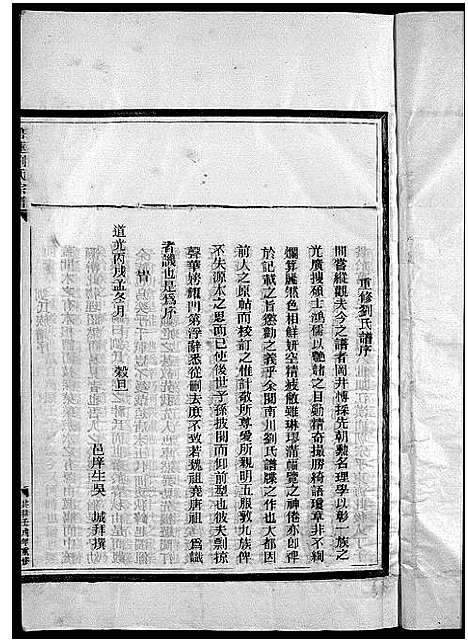 重修劉氏譜序
間嘗縱觀夫今之譜者罔弗博採先朝勳名理學以彰一族之
光廣搜碩士鴻儒以艷諸之目勦精奇撮勝綺語瓊章非不絢
爛算麗無色相鮮妍空精疲散雖琳璆滿幅覽之神倦亦卽裨
於記載之旨懲勸之義乎余閱南川劉氏譜牒之作也大都因
前人之原帖而校訂之惟計數所尊愛所親明五服敦九族俾
不失源本之思而已使後世子孫披閱而仰前型也彼夫剽掠
聲華姱耀門第浮辭悉從刪去庶不致若魏祖堯唐祖 為識
者譏也是為序
旹
道光丙戌孟冬月 穀旦
邑庠生吳 城拜撰
劉氏宗譜